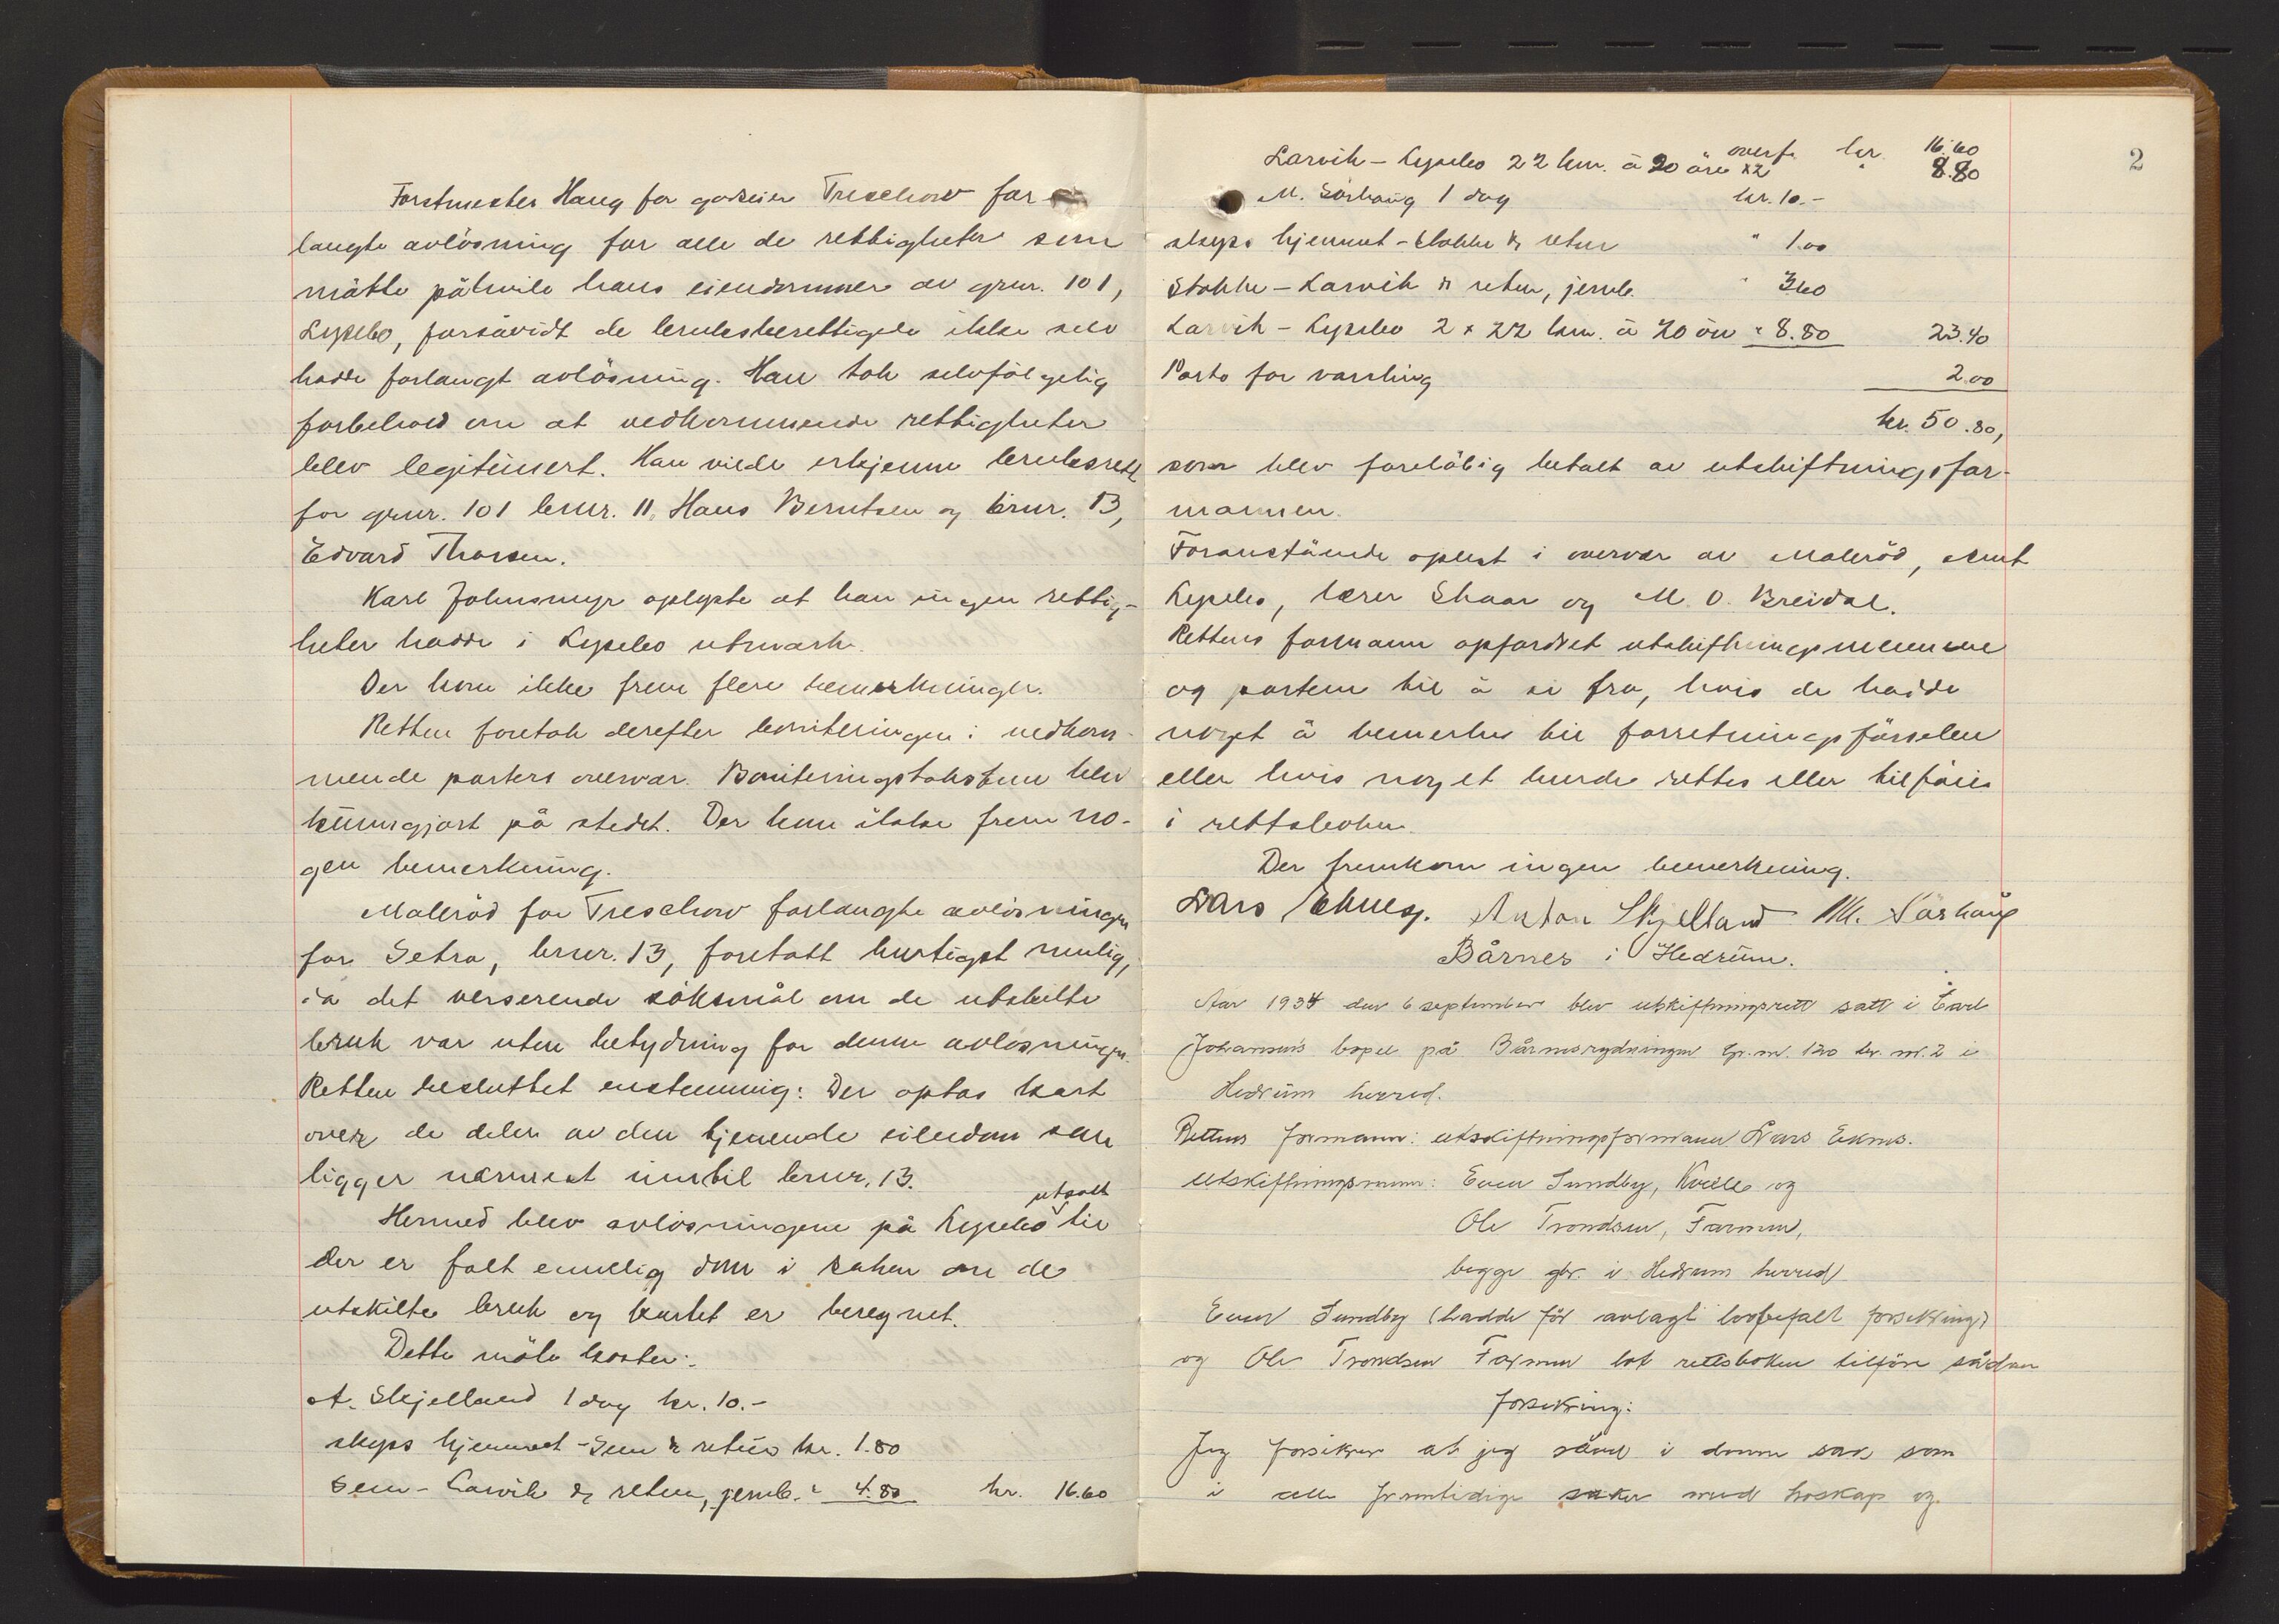 Forstmester Haug for godseier Treschow for-
langte avlösning for alle de rettigheter som
måtte påhvile hans eiendommer av gnr. 101,
Lysebo, forsåvidt de bruksberettigede ikke selv
hadde forlangt avlösning. Han tok selvfölgelig
forbehold om at vedkommende rettigheter
blev legitimert. Han vilde erkjenne bruksrett
for gnr. 101 brnr. 11, Hans Berntsen og brnr. 13,
Edvard Thorsen.
Karl Johnsmyr oplyste at han ingen rettig-
heter hadde i Lysebo utmark.
Der kom ikke frem flere bemerkninger.
Retten foretok derefter boniteringen i vedkom-
mende parters overvær. Boniteringstaksten blev
kunngjort på stedet. Der kom ikke frem no-
gen bemerkning.
Malleröd for Treschow forlangte avlösningen
for Setra, brnr. 13, foretatt hurtigst mulig,
da det verserende söksmål om de utskilte
bruk var uten betydning for denne avlösningen.
Retten besluttet enstemmig: Der optas kart
over de deler av den tjenende eiendom som
ligger nærmest inntil brnr. 13.
Hermed blev avlösningene på Lysebo utsatt til
der er falt endelig dom i saken om de
utskilte bruk og kartet er beregnet.
Dette möte koster:
A. Skjelland 1 dag kr. 10.-
skyss hjemmet - Sem & retur kr. 1.80
Sem - Larvik & retur, jernb. " 4.80 kr. 16.60
2
overf. kr. 16.60
Larvik - Lysebo 22 km. à 20 öre x2 " 8.80
M. Sörhaug 1 dag kr. 10.-
skyss hjemmet - Stokke & retur " 1.00
Stokke - Larvik & retur, jernb. " 3.60
Larvik - Lysebo 2 x 22 km. à 20 öre " 8.80 23.40
Porto for varsling 2.00
kr. 50.80,
som blev foreløbig betalt av utskiftningsfor-
mannen.
Foranstående oplest i overvær av Malleröd, Aent
Lysebo, lærer Skaar og M. O. Breidal.
Rettens formann opfordret utskiftningsmennene
og partene til å si fra, hvis de hadde
noget å bemerke til forretningsförselen
eller hvis noget burde rettes eller tilföies
i rettsboken.
Der fremkom ingen bemerkning.
Lars Eknes. Anton Skjelland M. Sörhaug
Bårnes i Hedrum.
Aar 1934 den 6 september blev utskiftningsrett satt i Carl
Johansens bopel på Bårnesrydningen gr.nr. 120 br. nr. 2 i
Hedrum herred.
Rettens formann: utskiftningsformann Lars Eknes.
Utskiftningsmenn: Even Sundby, Kvelle og
Ole Trondsen, Farmen,
begge gbr. i Hedrum herred
Even Sundby (hadde för avlagt lovbefalt forsikring)
og Ole Trondsen Farmen lot rettsboken tilföre sådan
forsikring:
Jeg forsikrer at jeg såvel i denne sak som
i alle fremtidige saker med troskap og